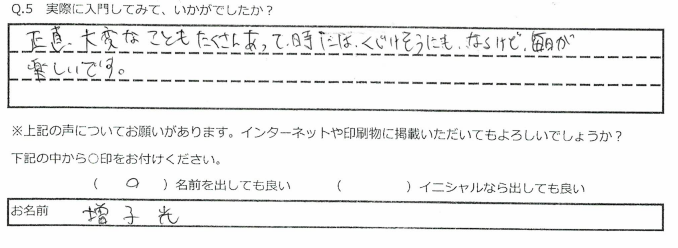 Q.5 実際に入門してみて、いかがでしたか？
正直、大変なこともたくさんあって、時には、くじけそうにも、なるけど、毎日が
楽しいです。
※上記の声についてお願いがあります。インターネットや印刷物に掲載いただいてもよろしいでしょうか？
下記の中から○印をお付けください。
（ ○ ）名前を出しても良い （ ）イニシャルなら出しても良い
お名前 増子光